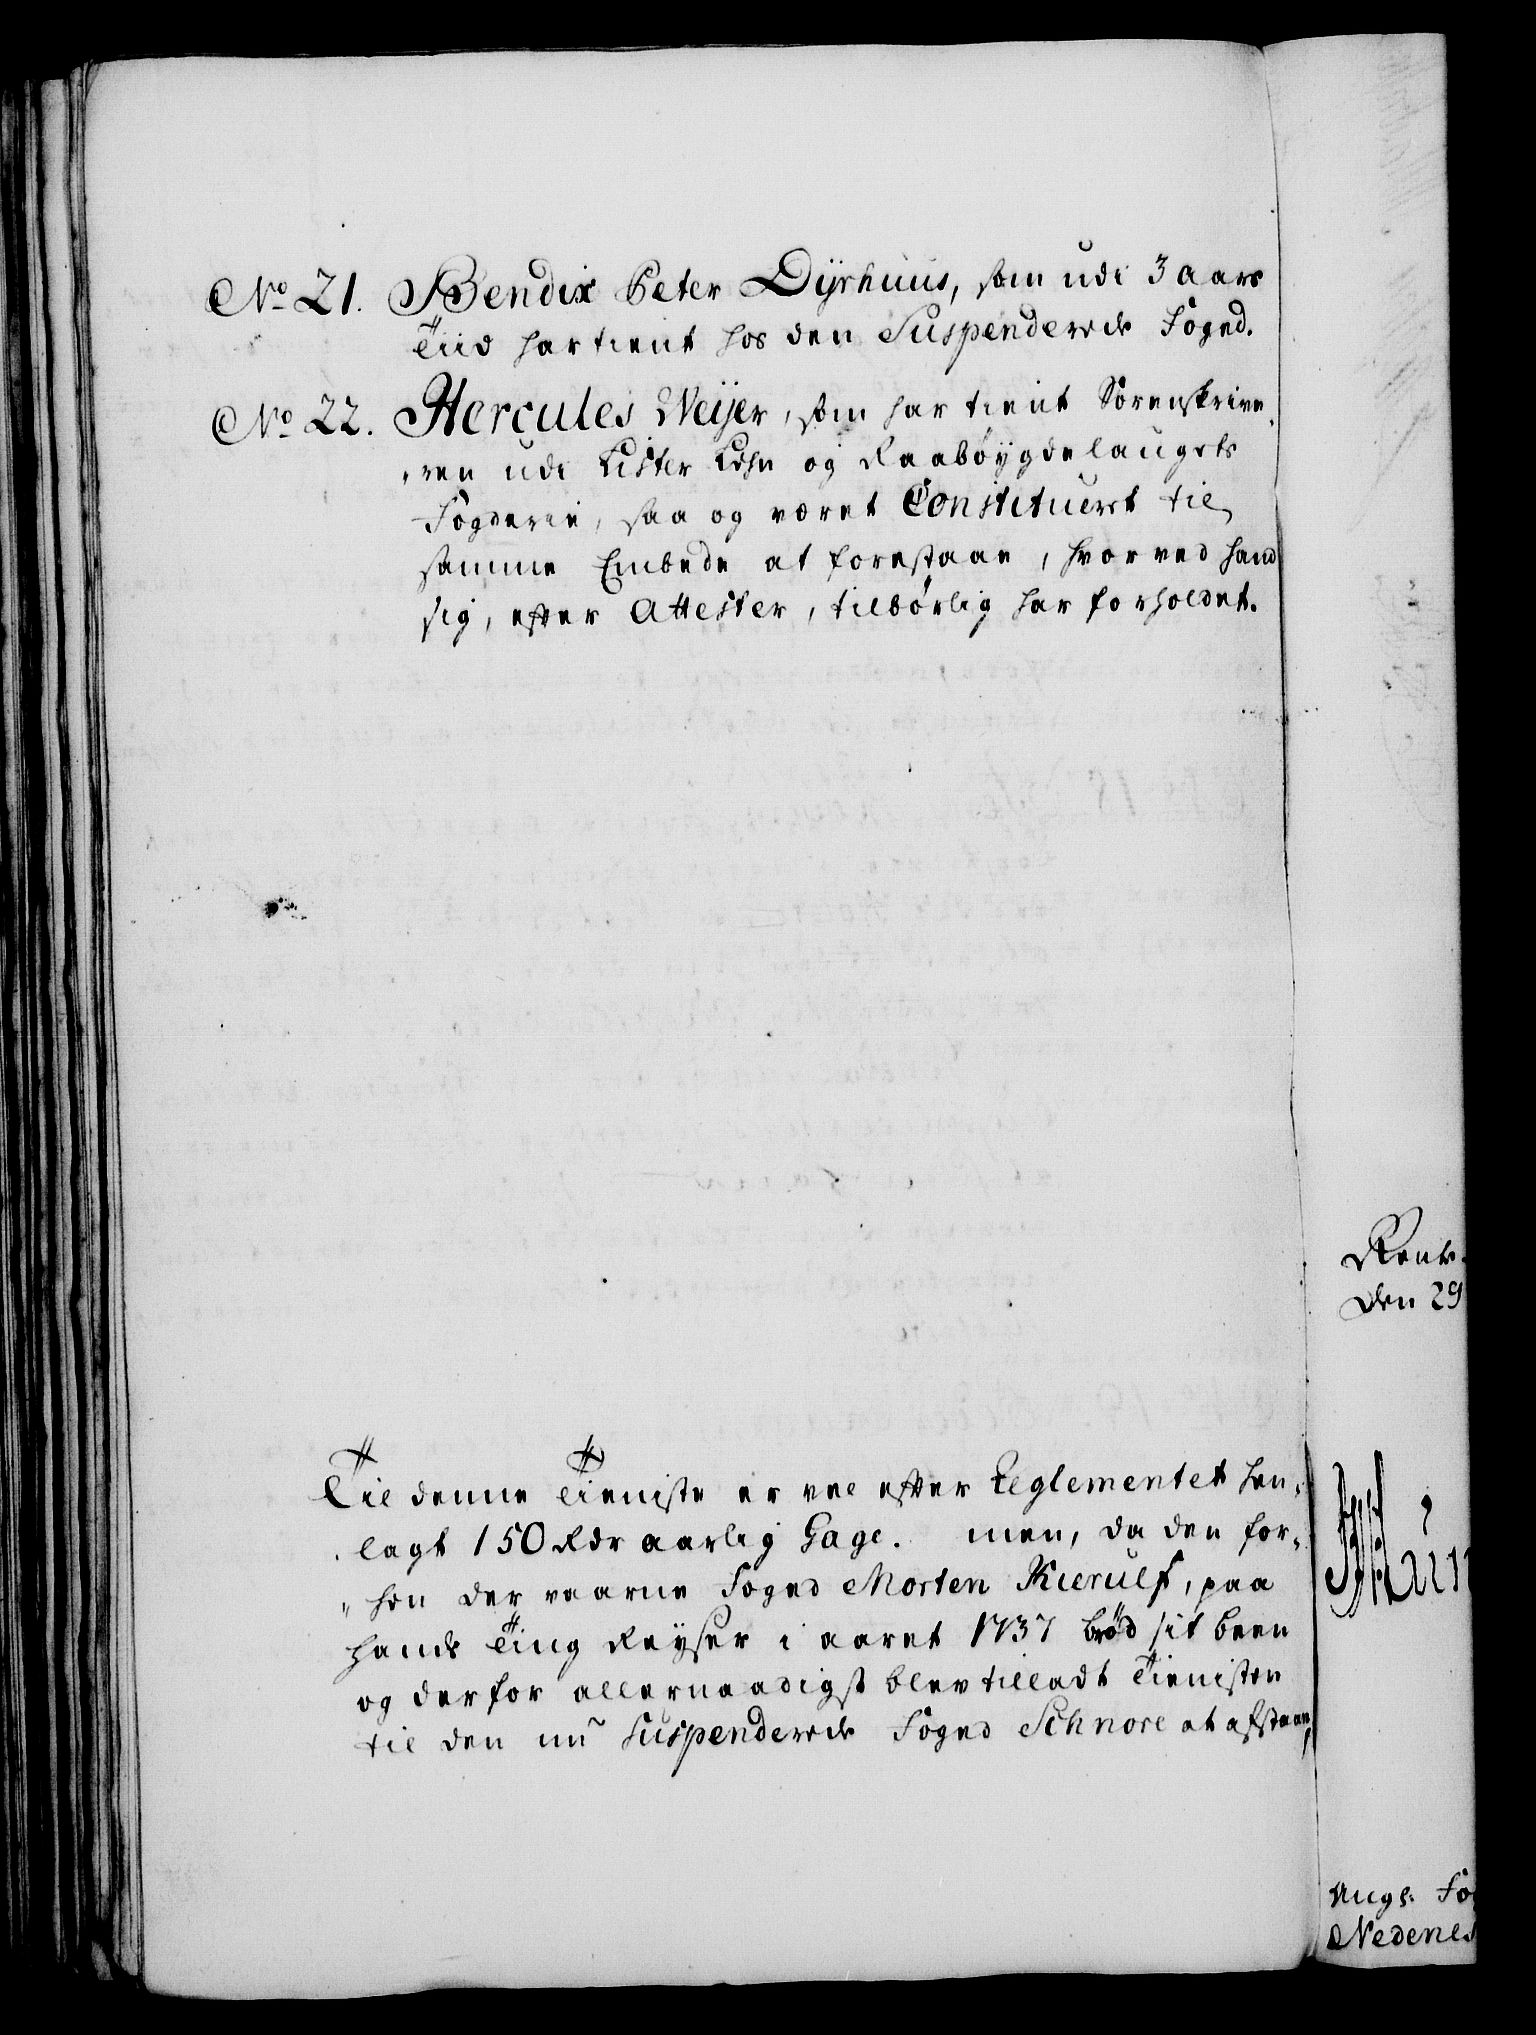 No 21. Bendix Peter Dyrhuus, som udi 3 aars
Tiid har tient hos den Suspenderede Foged.
No 22. Hercules Weijer, som har tient Sorenskrive,
,ren udi Lister Lehn og Raabøygdelaugets
Fogderie, saa og været Constitueret til
samme Embede at forestaae, hvorved hand
sig, efter Attester, tilbørlig har forholdet.
Til denne Tieniste er vel efter Reglementet hen,
lagt 150 Rdr aarlig Gage. men, da den for,
,hen der vaarne Foged Morten Kierulf, paa
hands Ting Reyser i aaret 1737 brød sit been
og derfor allernaadigst blev tilladt Tienisten
til den nu Suspenderede Foged Schnore at afstaae,
Rente
den 29
Aug: Fo
Nedenes